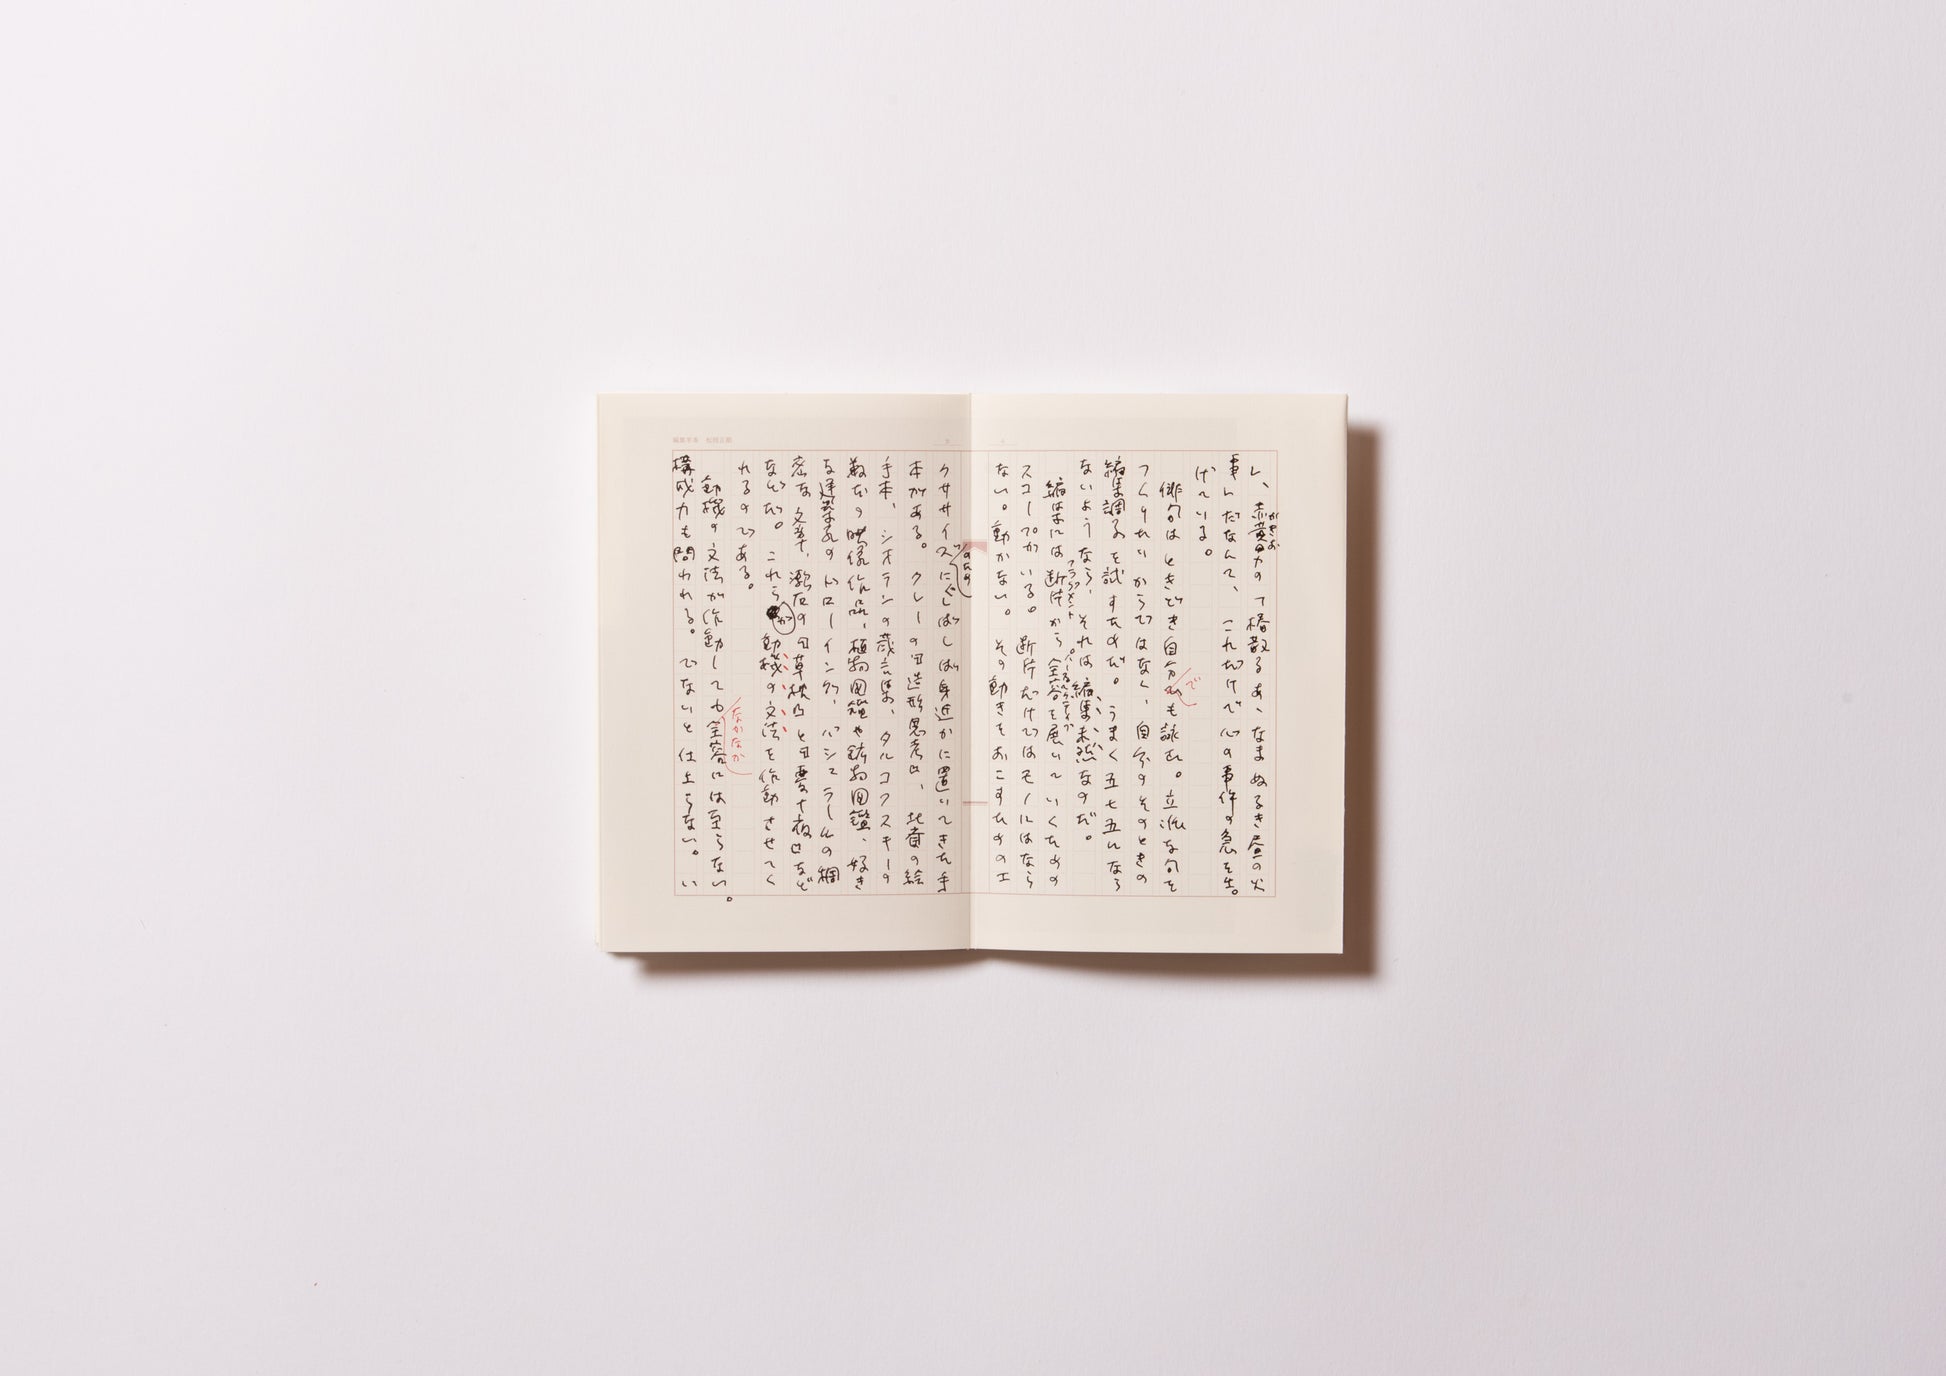 し、赤黄男の「椿散るあゝなまぬるき昼の火
かきお
事」だなんて、これだけで心の事件の急を告
げている。
俳句はときどき自分でも詠む。立派な句を
つくりたいからではなく、自分のそのときの
編集調子を試すためだ。うまく五七五になら
ないようなら、それは編集未然なのだ。
編集には断片から全容を展いていくための
フラグメント
スコープがいる。断片だけではモノにはなら
ない。動かない。その動きをおこすためのエ
クササイズに
のための
しばしば身近かに置いてきた手
本がある。クレーの『造形思考』、北斎の絵
手本、シオランの箴言集、タルコフスキーの
数本の映像作品、植物図鑑や鉱物図鑑、好き
な建築家のドローイング、バシュラールの稠
密な文章、漱石の『草枕』と『夢十夜』など
などだ。これらが動機の文法を作動させてく
れるのである。
動機の文法が作動しても全容には至らない。
なかなか
構成力も問われる。でないと仕上らない。い
編集手本 松岡正剛